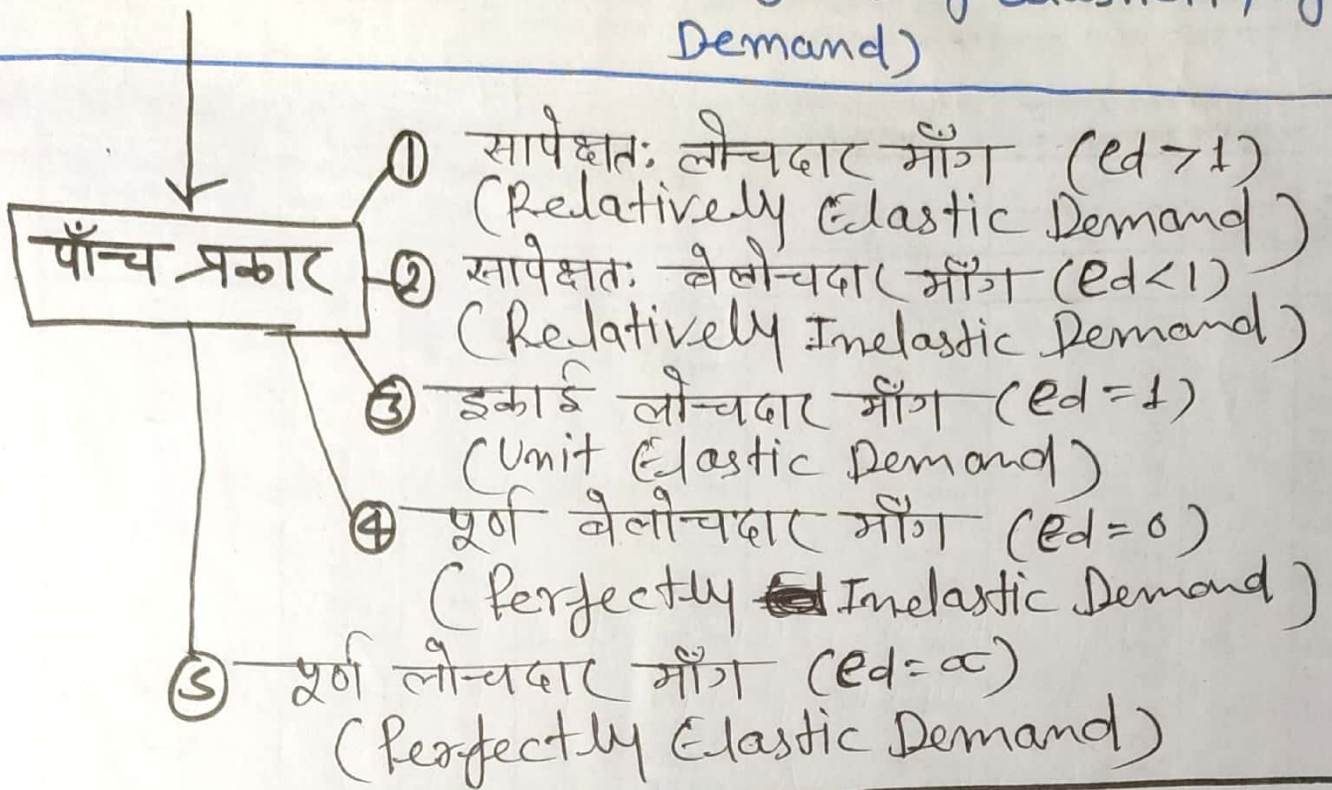 Demand)
पाँच प्रकार
① सापेक्षतः लोचदार माँग (ed >1)
(Relatively Elastic Demand)
② सापेक्षतः बेलोचदार माँग (ed<1)
(Relatively Inelastic Demand)
③ इकाई लोचदार माँग (ed =1)
(Unit Elastic Demand)
④ पूर्ण बेलोचदार माँग (ed=0)
(Perfectly Inelastic Demand)
⑤ पूर्ण लोचदार माँग (ed=∝)
(Perfectly Elastic Demand)